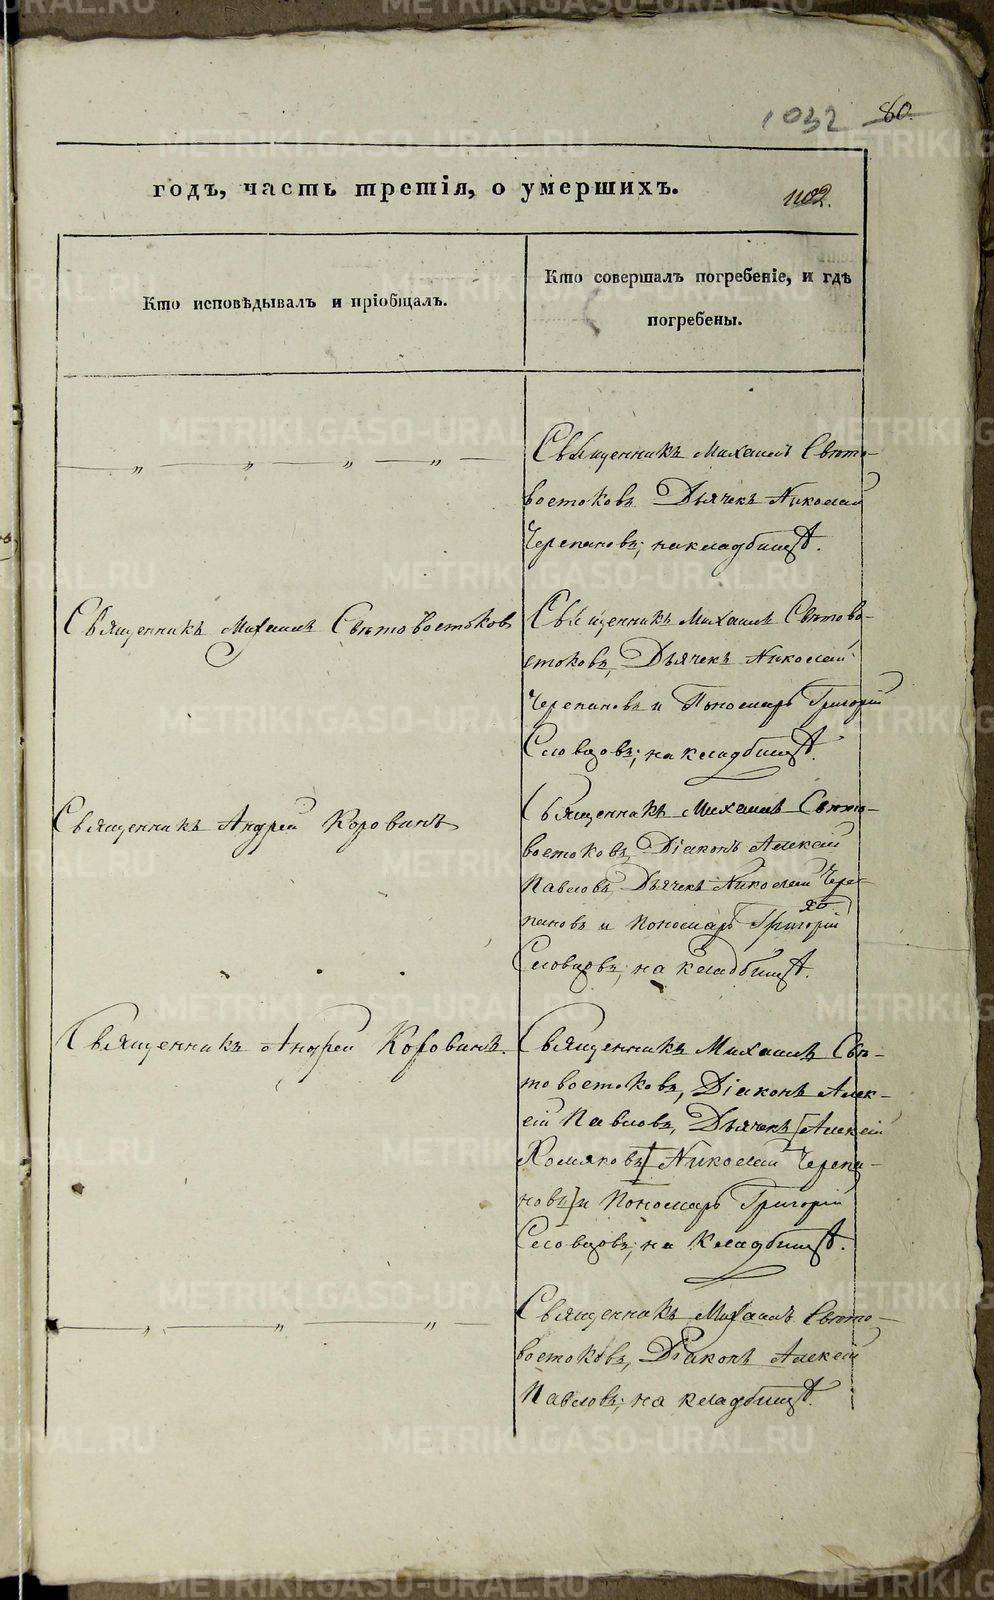 1032 80.
годъ, часть третія, о умершихъ.
1102.
Кто исповѣдывалъ и пріобщалъ.
Кто совершалъ погребеніе, и гдѣ
погребены.
— „ — „ — „ — „ —
Священникъ Михаилъ Свѣто-
востоковъ Дьячекъ Николай
Черепановъ; на кладбищѣ.
Священникъ Михаилъ Свѣтовостоковъ
Священникъ Михаилъ Свѣтово-
стоковъ, Дьячекъ Николай
Черепановъ и Пономарь Григорій
Словцовъ; на кладбищѣ.
Священникъ Андрей Коровинъ
Священникъ Михаилъ Свѣто-
востоковъ, Діаконъ Алексій
Павловъ, Дьячекъ Николай Чере-
пановъ и Пономарь Григорій
Словцовъ; на кладбищѣ.
Священникъ Андрей Коровинъ.
Священникъ Михаилъ Свѣ-
товостоковъ, Діаконъ Алек-
сій Павловъ, Дьячекъ [Алексій
Хомяковъ] Николай Черепа-
новъ] и Пономарь Григорій
Словцовъ; на кладбищѣ.
— „ — „ — „ —
Священникъ Михаилъ Свѣто-
востоковъ, Діаконъ Алексій
Павловъ; на кладбищѣ.
METRIKI.GASO-URAL.RU